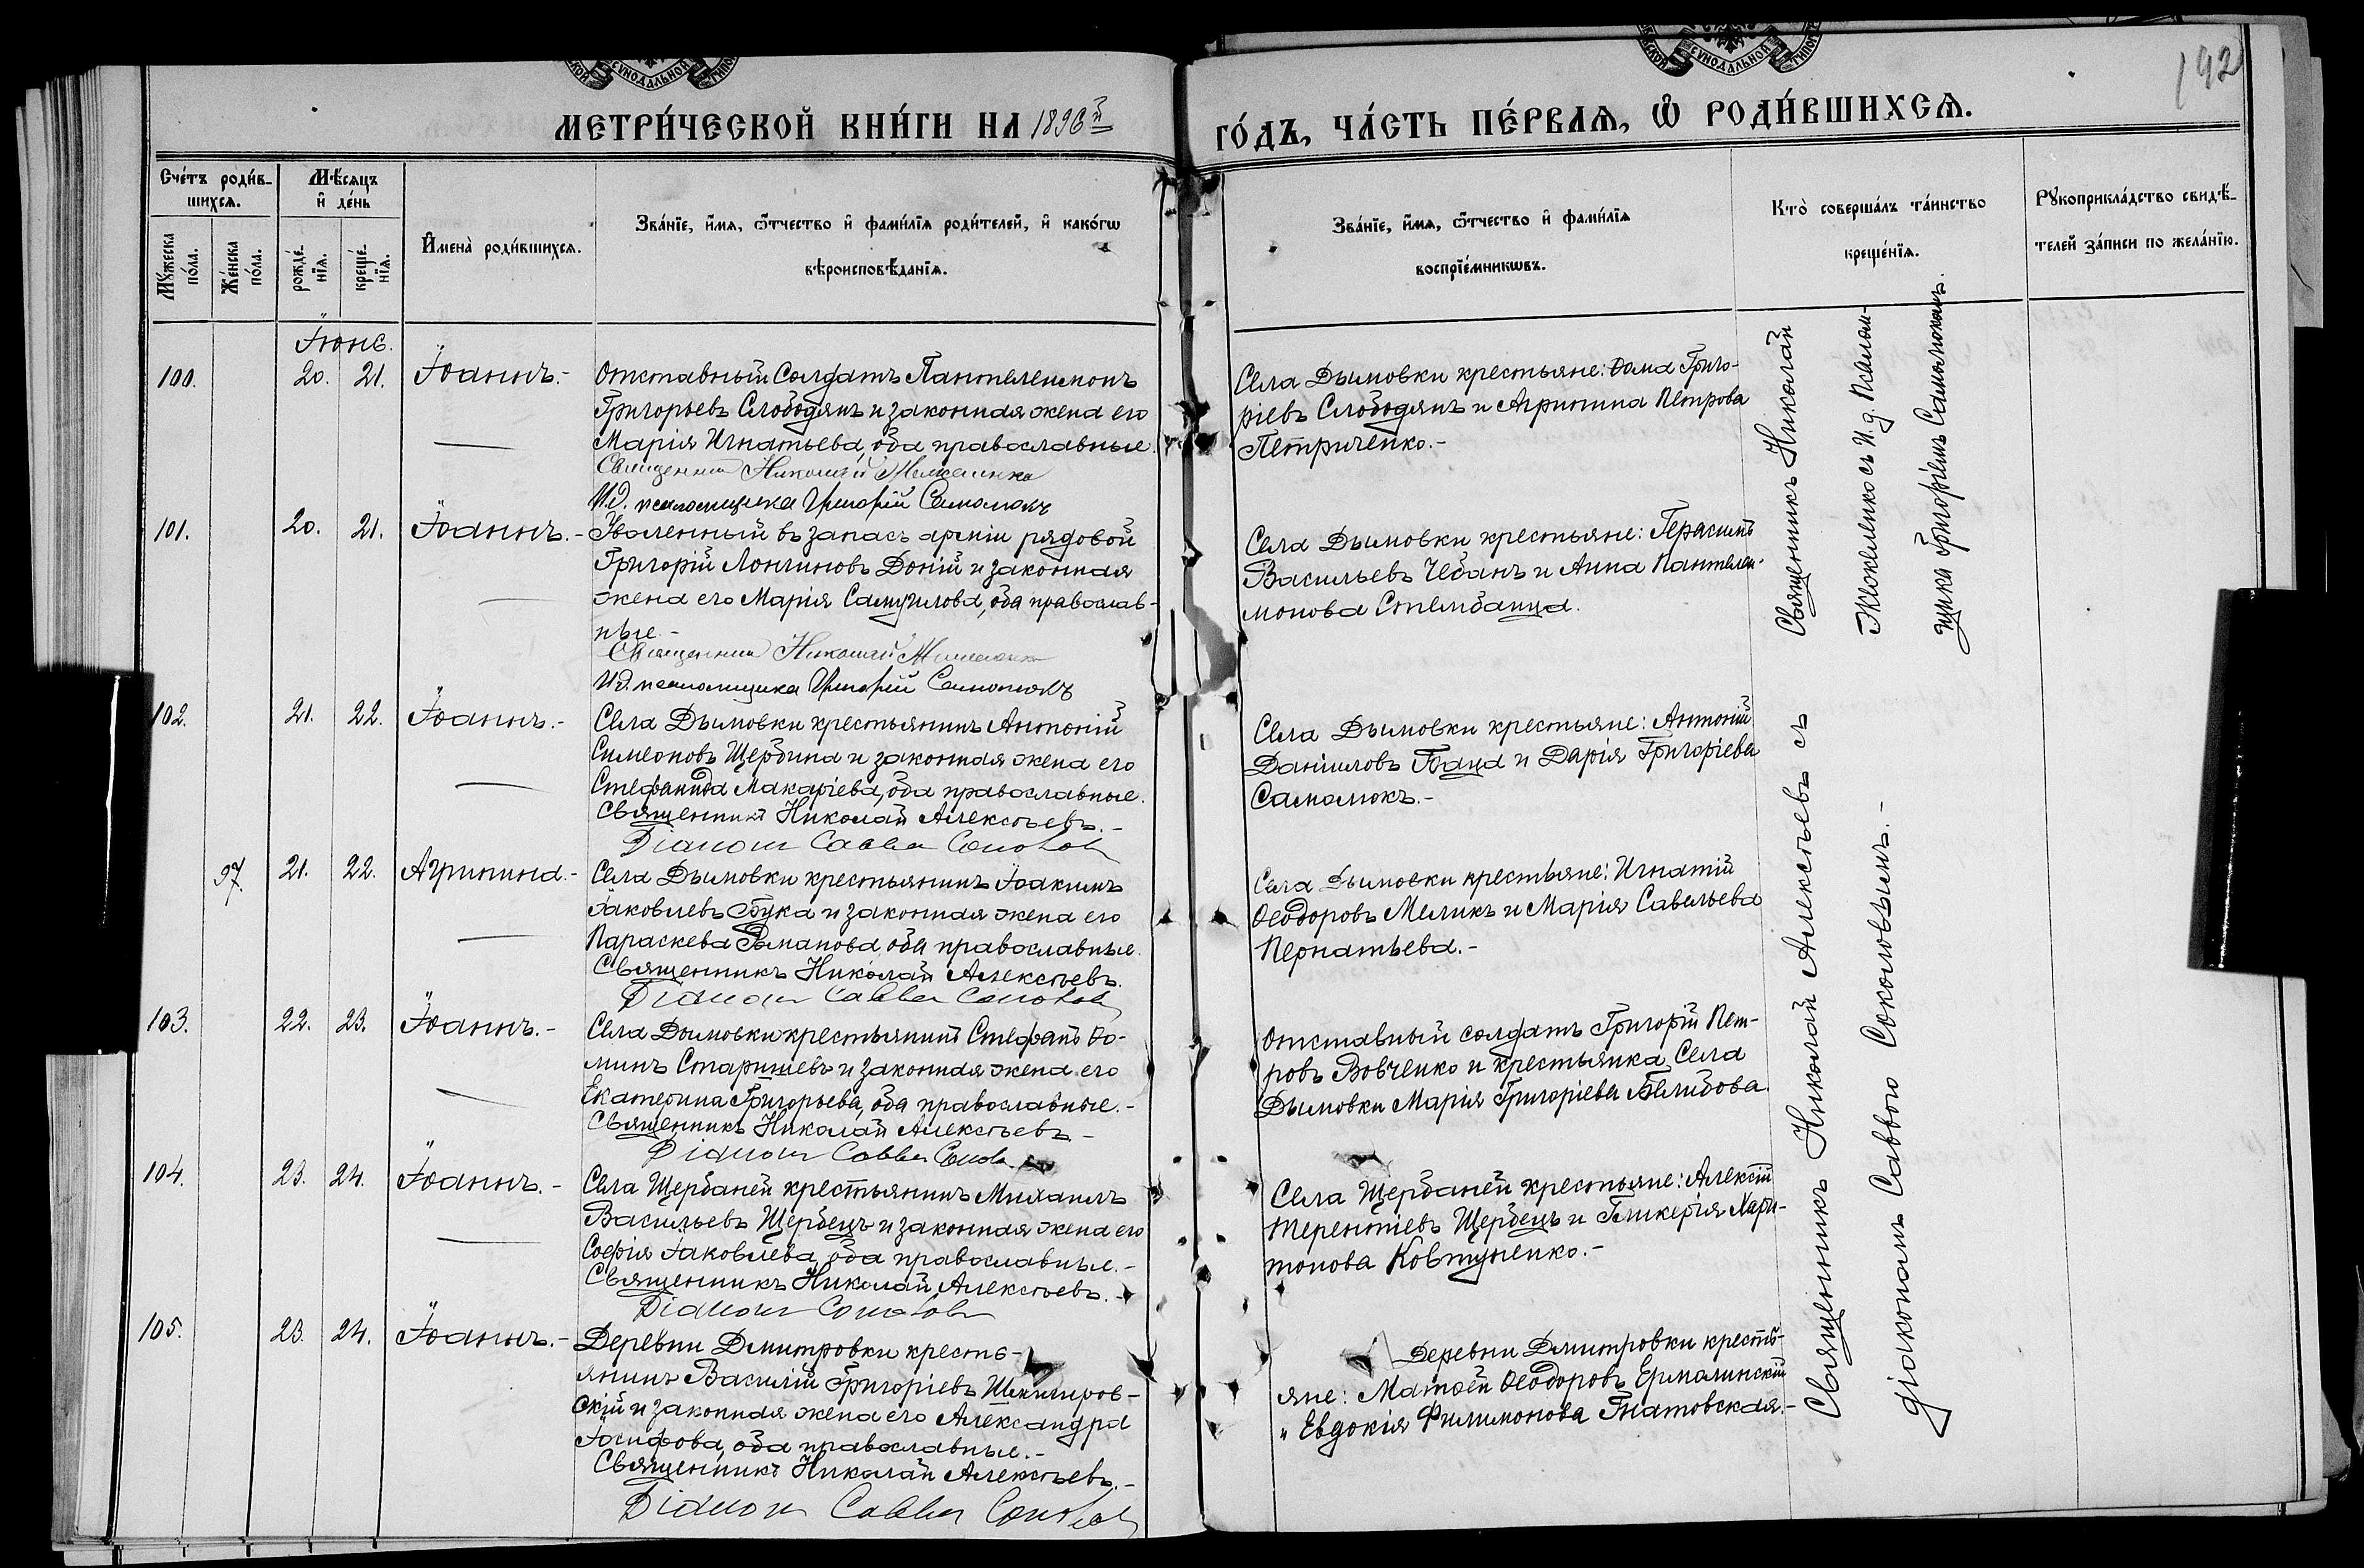 СУНОДАЛЬНОЙ
СУНОДАЛЬНОЙ
192
МЕТРИ́ЧЕСКОЙ КНИ́ГИ НА 1896й
ГО́ДЪ, ЧА́СТЬ ПЕ́РВАѦ, Ѡ҆ РОДИ́ВШИХСѦ.
Сче́тъ роди́в-
шихсѧ.
Мѣ́сѧцъ
и҆ де́нь
Мꙋ́жеска по́ла.
Же́нска по́ла.
рожде́-нїѧ.
креще́-нїѧ.
И҆мена̀ роди́вшихсѧ.
Зва́нїе, и҆́мѧ, ѻ҆́тчество и҆ фами́лїѧ роди́телей, и҆ како́гѡ
вѣроисповѣ́данїѧ.
Зва́нїе, и҆́мѧ, ѻ҆́тчество и҆ фами́лїѧ
воспрїе́мникѡвъ.
Кто̀ соверша́лъ та́инство
креще́нїѧ.
Рꙋкоприкла́дство свидѣ́-
телей за́писи по жела́нїю.
Іюнь.
100. 20. 21. Іоаннъ.- Отставный Солдатъ Пантелеимонъ
Григорьевъ Слободянъ и законная жена его
Марія Игнатьева, оба православные.
Священник Николай
И.д. псаломщика Григорій Самолюкъ
Села Дымовки крестьяне: Ѳома Григо-
ріевъ Слободянъ и Агрипина Петрова
Петриченко.-
101. 20. 21. Іоаннъ.- Уволенный въ запасъ арміи рядовой
Григорій Лонгиновъ Доній и законная
жена его Марія Самуилова, оба православ-
ные.-
Священник Николай
И.д. псаломщика Григорій Самолюкъ
Села Дымовки крестьяне: Герасимъ
Васильевъ Чебанъ и Анна Пантелеи-
монова Стембанца.
Священникъ Николай
съ И.д. псалом-
щика Григоріемъ Самолюкомъ.
102. 21. 22. Іоаннъ.- Села Дымовки крестьянинъ Антоній
Симеоновъ Щербина и законная жена его
Стефанида Макаріева, оба православные.
Священникъ Николай Алексѣевъ.-
Діакон Савва Соколов
Села Дымовки крестьяне: Антоній
Даниловъ Баца и Дарія Григоріева
Самолюкъ.-
97. 21. 22. Агрипина.- Села Дымовки крестьянинъ Іоакимъ
Іаковлевъ Бука и законная жена его
Параскева Романова, оба православные.
Священникъ Николай Алексѣевъ.
Діакон Савва Соколов
Села Дымовки крестьяне: Игнатій
Ѳеодоровъ Меликъ и Марія Савельева
Пернатьева.-
103. 22. 23. Іоаннъ.- Села Дымовки крестьянинъ Стефанъ Ѳо-
минъ Старишевъ и законная жена его
Екатерина Григорьева, оба православные.-
Священникъ Николай Алексѣевъ-
Діакон Савва
Отставный солдатъ Григорій Пет-
ровъ Вовченко и крестьянка Села
Дымовки Марія Григоріева Белибова
104. 23. 24. Іоаннъ.- Села Щербаней крестьянинъ Михаилъ
Васильевъ Щербецъ и законная жена его
Софія Іаковлева, оба православные.-
Священникъ Николай Алексѣевъ.-
Діакон Соколов
Села Щербаней крестьяне: Алексій
Терентіевъ Щербецъ и Гликерія Хари-
тонова Ковтуненко.-
105. 23. 24. Іоаннъ.- Деревни Дмитровки кресть-
янинъ Василій Григоріевъ
скій и законная жена его Александра
Іосифова, оба православные.-
Священникъ Николай Алексѣевъ.-
Діакон Савва Соколов
Деревни Дмитровки кресть-
яне: Матѳей Ѳеодоровъ Ермолинскій
и Евдокія Филимонова Гнатовская.-
Священникъ Николай Алексѣевъ съ
діакономъ Саввою Соколовымъ.-